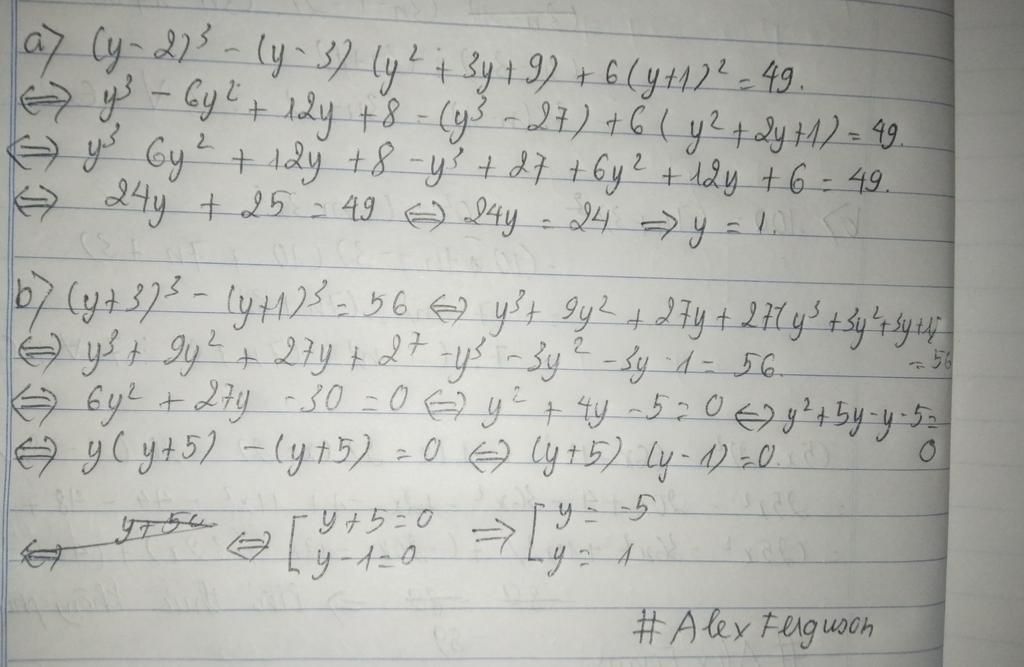 a) (y - 2)³ - (y - 3) (y² + 3y + 9) + 6(y+1)² = 49.
⇔ y³ - 6y² + 12y + 8 - (y³ - 27) + 6( y² + 2y + 1) = 49.
⇔ y³ 6y² + 12y + 8 - y³ + 27 + 6y² + 12y + 6 = 49.
⇔ 24y + 25 = 49 ⇔ 24y = 24 ⇒ y = 1.
b) (y+3)³ - (y+1)³ = 56 ⇔ y³ + 9y² + 27y + 27(y³ + 3y² + 3y + 1)
= 56
⇔ y³ + 9y² + 27y + 27 - y³ - 3y² - 3y - 1 = 56.
⇔ 6y² + 27y - 30 = 0 ⇔ y² + 4y - 5 = 0 ⇔ y² + 5y - y - 5 =
0
⇔ y( y+5) - (y+5) = 0 ⇔ (y+5) (y-1) = 0.
⇔ [ y + 5 = 0 ⇒ [ y = -5
y - 1 = 0 y = 1
# Alex Ferguson